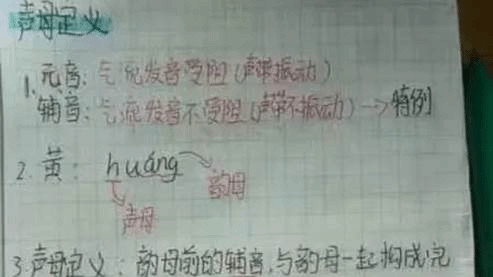 声母定义
1. 元音：气流发音受阻（声带振动）
辅音：气流发音不受阻（声带不振动）→特例
2. 黄：huáng
韵母
声母
3. 声母定义：韵母前的辅音，与韵母一起构成完